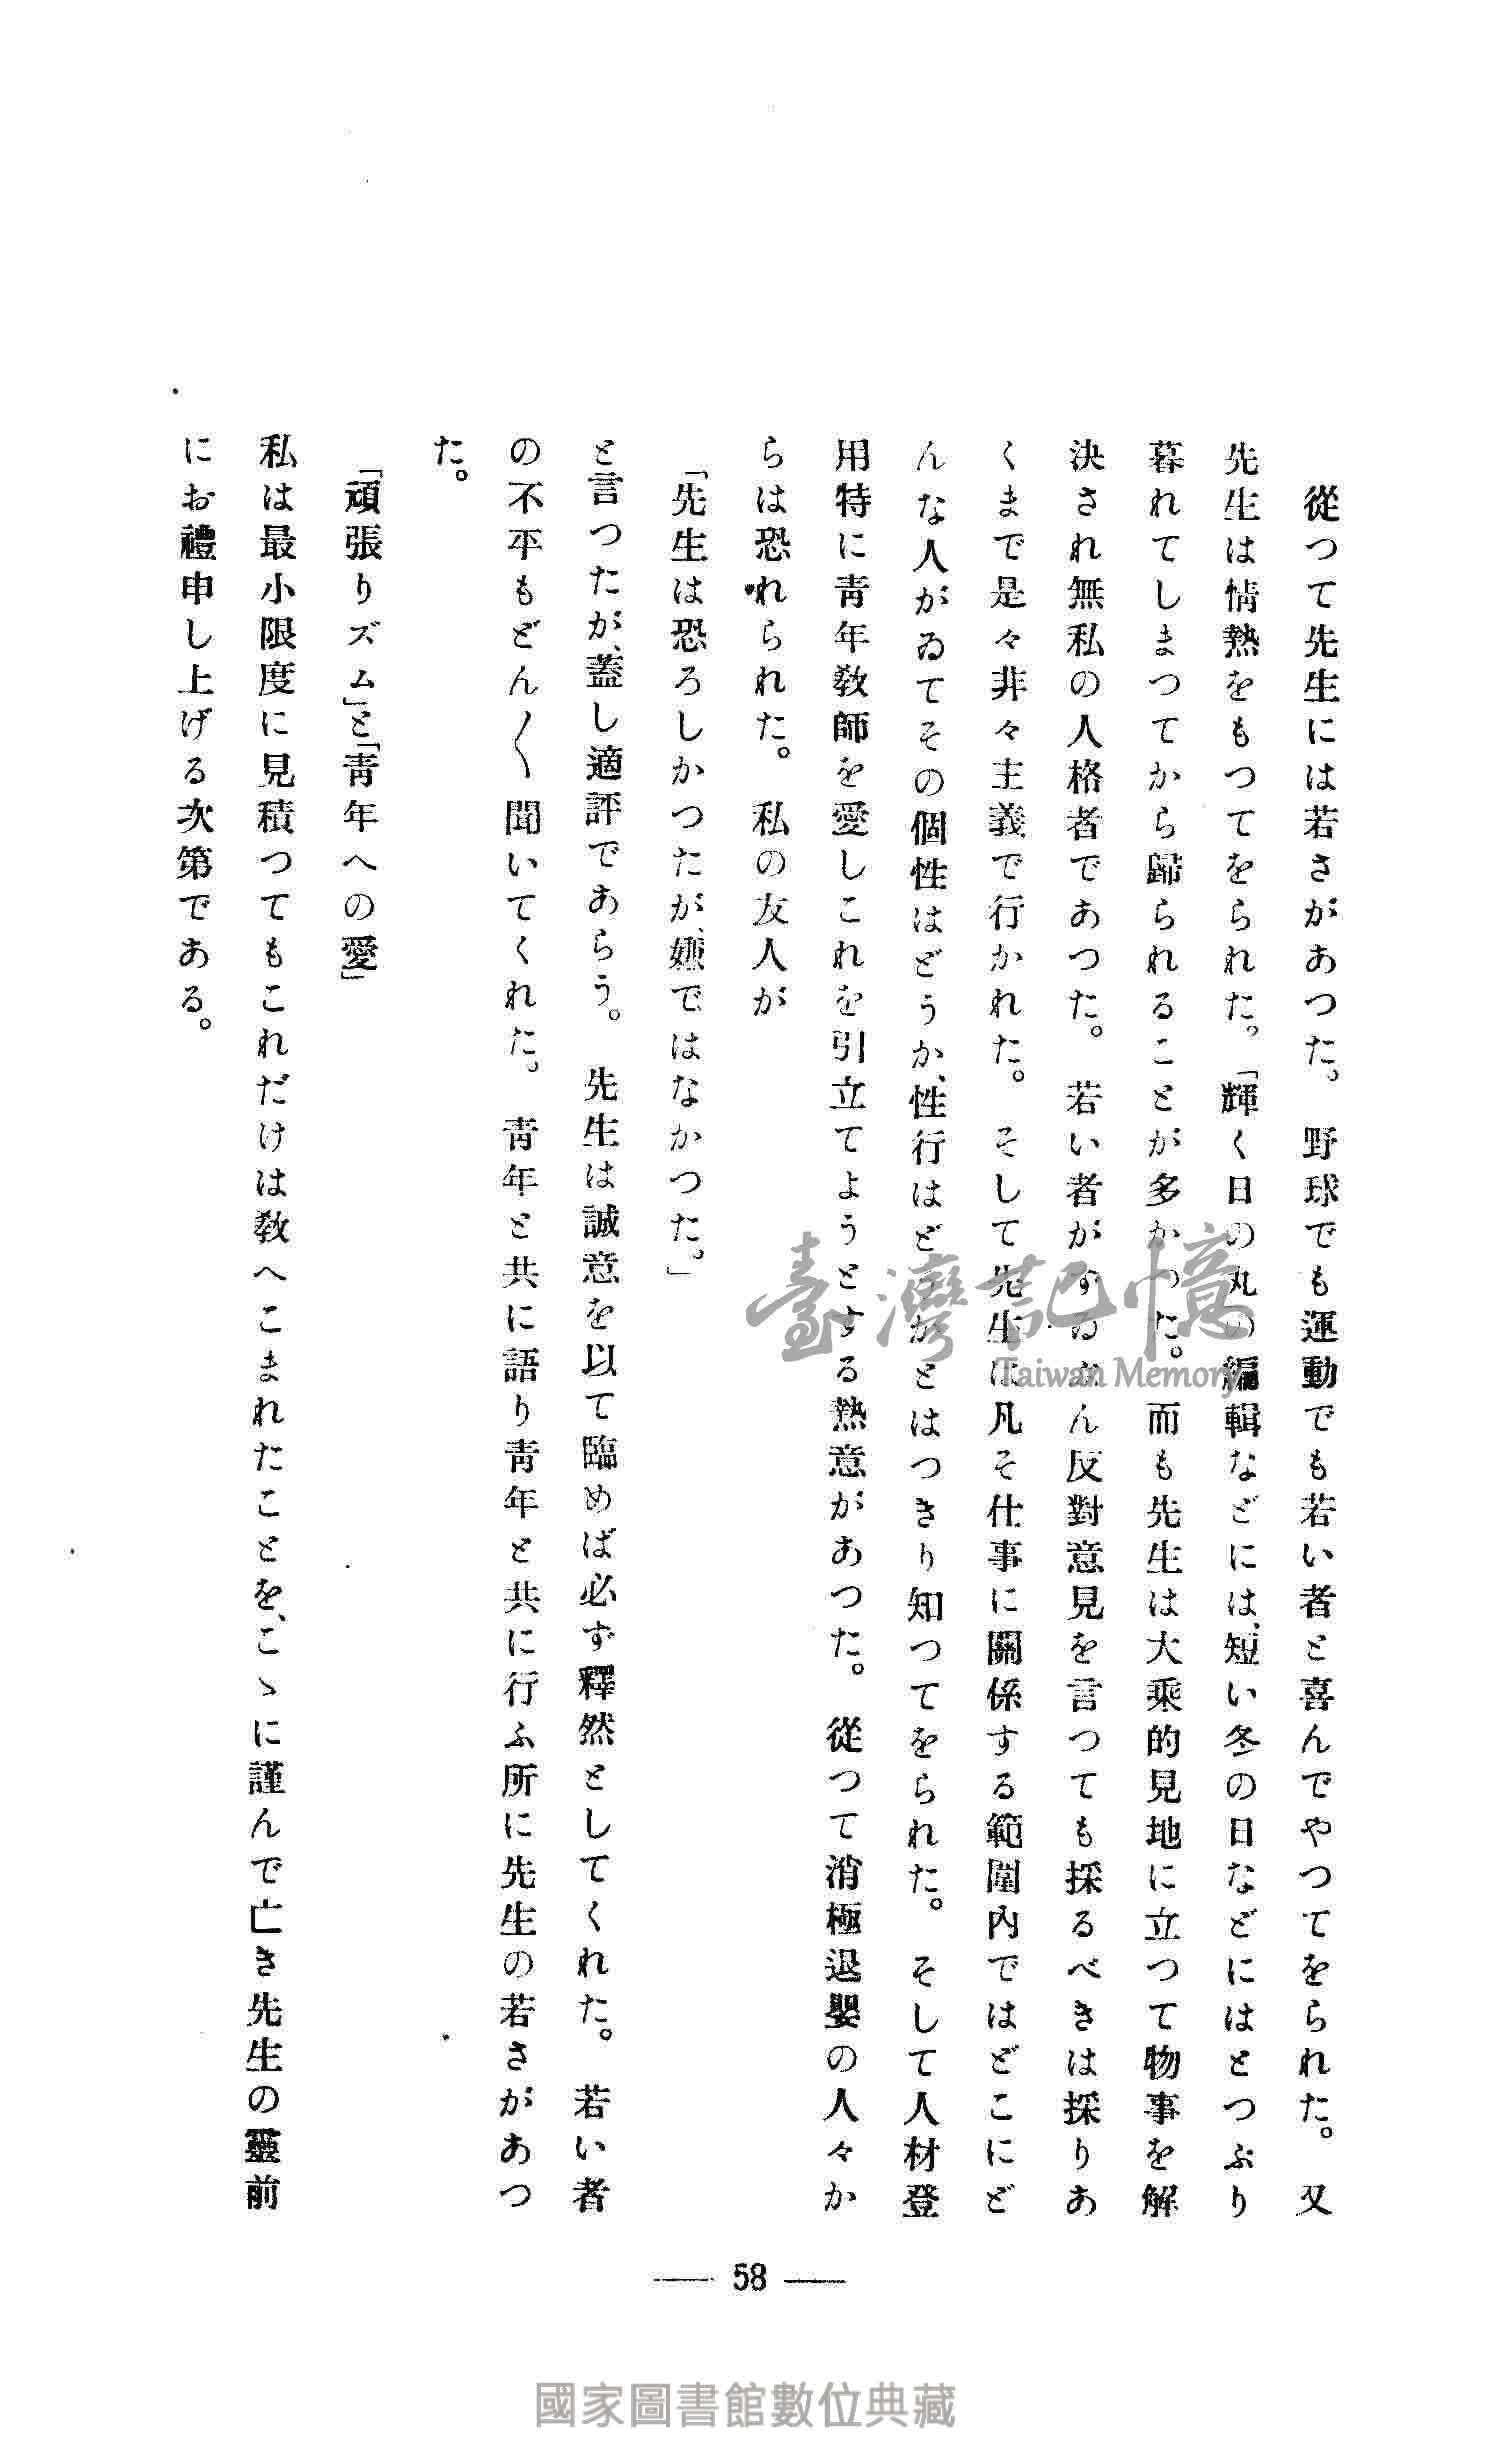 從つて先生には若さがあつた。　野球でも運動でも若い者と喜んでやつてをられた。　又
先生は情熱をもつてをられた。「輝く日の丸の編輯などには、短い冬の日などにはとつぷり
暮れてしまつてから歸られることが多かつた。　而も先生は大乘的見地に立つて物事を解
決され無私の人格者であつた。　若い者がずゐぶん反對意見を言つても採るべきは採りあ
くまで是々非々主義で行かれた。　そして先生は凡そ仕事に關係する範圍內ではどこにど
んな人がゐてその個性はどうか、性行はどうかとはつきり知つてをられた。　そして人材登
用特に靑年敎師を愛しこれを引立てようとする熱意があつた。　從つて消極退嬰の人々か
らは恐れられた。　私の友人が
「先生は恐ろしかつたが、嫌ではなかつた。」
と言つたが、蓋し適評であらう。　先生は誠意を以て臨めば必ず釋然としてくれた。　若い者
の不平もどん〱聞いてくれた。　靑年と共に語り靑年と共に行ふ所に先生の若さがあつ
た。
「頑張りズム」と「靑年への愛」
私は最小限度に見積つてもこれだけは敎へこまれたことを、こゝに謹んで亡き先生の靈前
にお禮申し上げる次第である。
— 58 —
臺灣記憶
Taiwan Memory
國家圖書館數位典藏